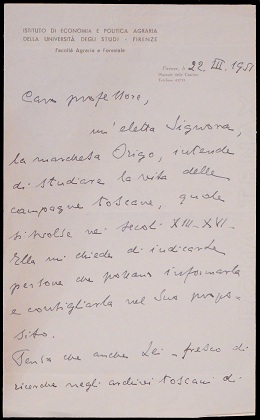 ISTITUTO DI ECONOMIA E POLITICA AGRARIA
DELLA UNIVERSITÀ DEGLI STUDI - FIRENZE
Facoltà Agraria e Forestale
Firenze, li 22. III. 1951
Piazzale delle Cascine
Caro professore,
un'eletta Signora,
la marchesa Origo, intende
di studiare la vita delle
campagne toscane, quale
si svolse nei secoli XIII-XVI-
Ella mi chiede di indicarle
persone che possano informarla
e consigliarla nel Suo propo-
sito.
Penso che anche Lei - fresco di
ricerche negli archivi toscani di